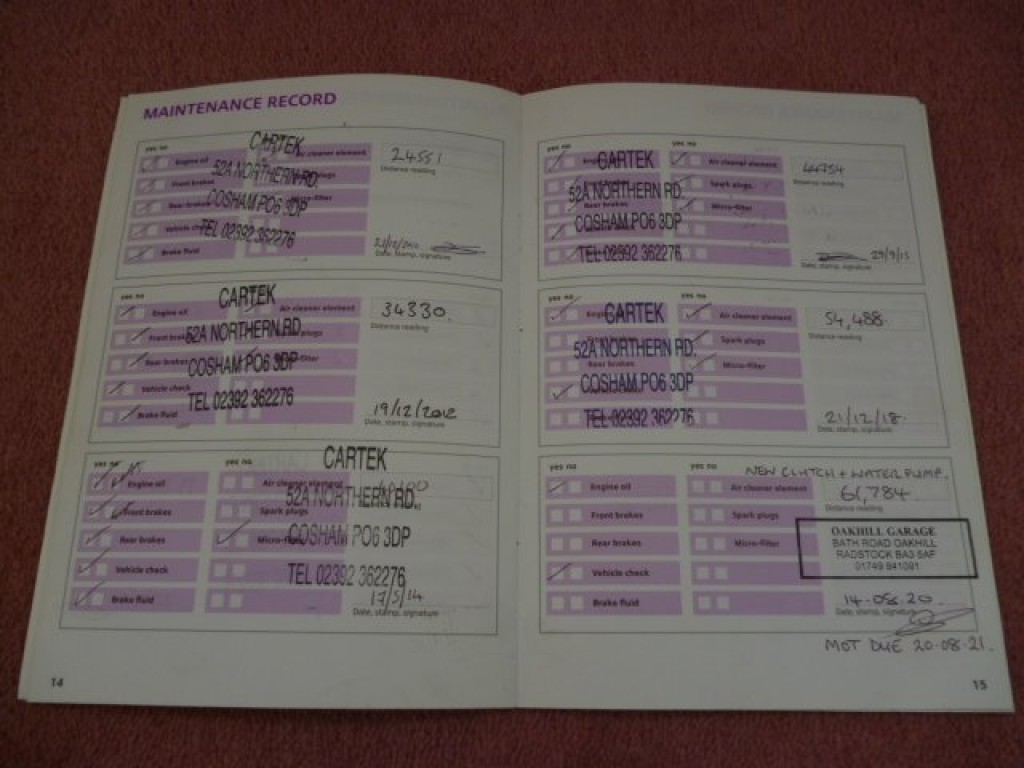 MAINTENANCE RECORD
yes no
Engine oil
Air cleaner element
Front brakes
Spark plugs
Rear brakes
Micro-filter
Vehicle check
Brake fluid
CARTEK
52A NORTHERN RD.
COSHAM PO6 3DP
TEL 02392 362276
24551
Distance reading
Date, stamp, signature
yes no
Engine oil
Air cleaner element
Front brakes
Spark plugs
Rear brakes
Micro-filter
Vehicle check
Brake fluid
CARTEK
52A NORTHERN RD.
COSHAM PO6 3DP
TEL 02392 362276
34330.
Distance reading
19/12/2012
Date, stamp, signature
yes no
yes no
Engine oil
Air cleaner element
Front brakes
Spark plugs
Rear brakes
Micro-filter
Vehicle check
Brake fluid
CARTEK
52A NORTHERN RD.
COSHAM PO6 3DP
TEL 02392 362276
17/5/14
Date, stamp, signature
14
yes no
yes no
Engine oil
Air cleaner element
Spark plugs
Rear brakes
Micro-filter
CARTEK
52A NORTHERN RD.
COSHAM PO6 3DP
TEL 02392 362276
Distance reading
29/9/15
Date, stamp, signature
yes no
yes no
Engine oil
Air cleaner element
Spark plugs
Micro-filter
CARTEK
52A NORTHERN RD.
COSHAM PO6 3DP
TEL 02392 362276
54,488.
Distance reading
21/12/18.
Date, stamp, signature
yes no
yes no
NEW CLUTCH + WATER PUMP.
Engine oil
Air cleaner element
61,784
Distance reading
Front brakes
Spark plugs
Rear brakes
Micro-filter
Vehicle check
Brake fluid
OAKHILL GARAGE
BATH ROAD OAKHILL
RADSTOCK BA3 5AF
01749 841091
14-08-20.
Date, stamp, signature
MOT DUE 20-08-21.
15